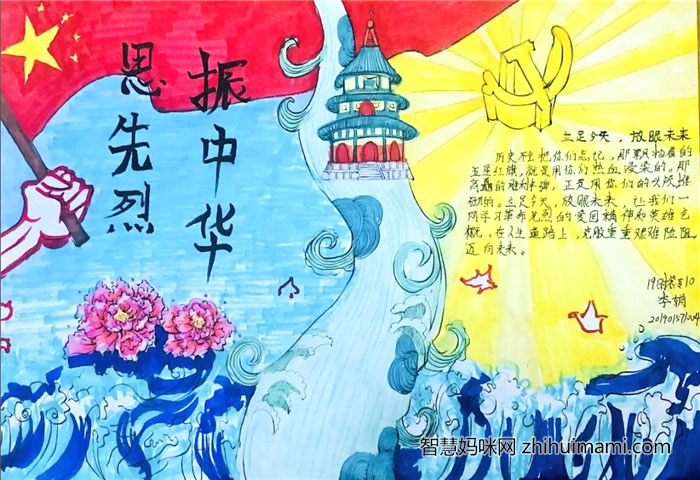 思先烈
振中华
立足今天，放眼未来
历史不会把你们忘记，那飘扬着的
五星红旗，就是用你们热血浸染的。那
高矗的丰碑，正是用你们的堆
砌的。立足今天，放眼未来，让我们一
同学习革命先烈的爱国精神和英雄气
概，在人生道路上，克服重重艰难险阻
迈向未来。
李娟
20190571004
智慧妈咪网 zhihuimami.com